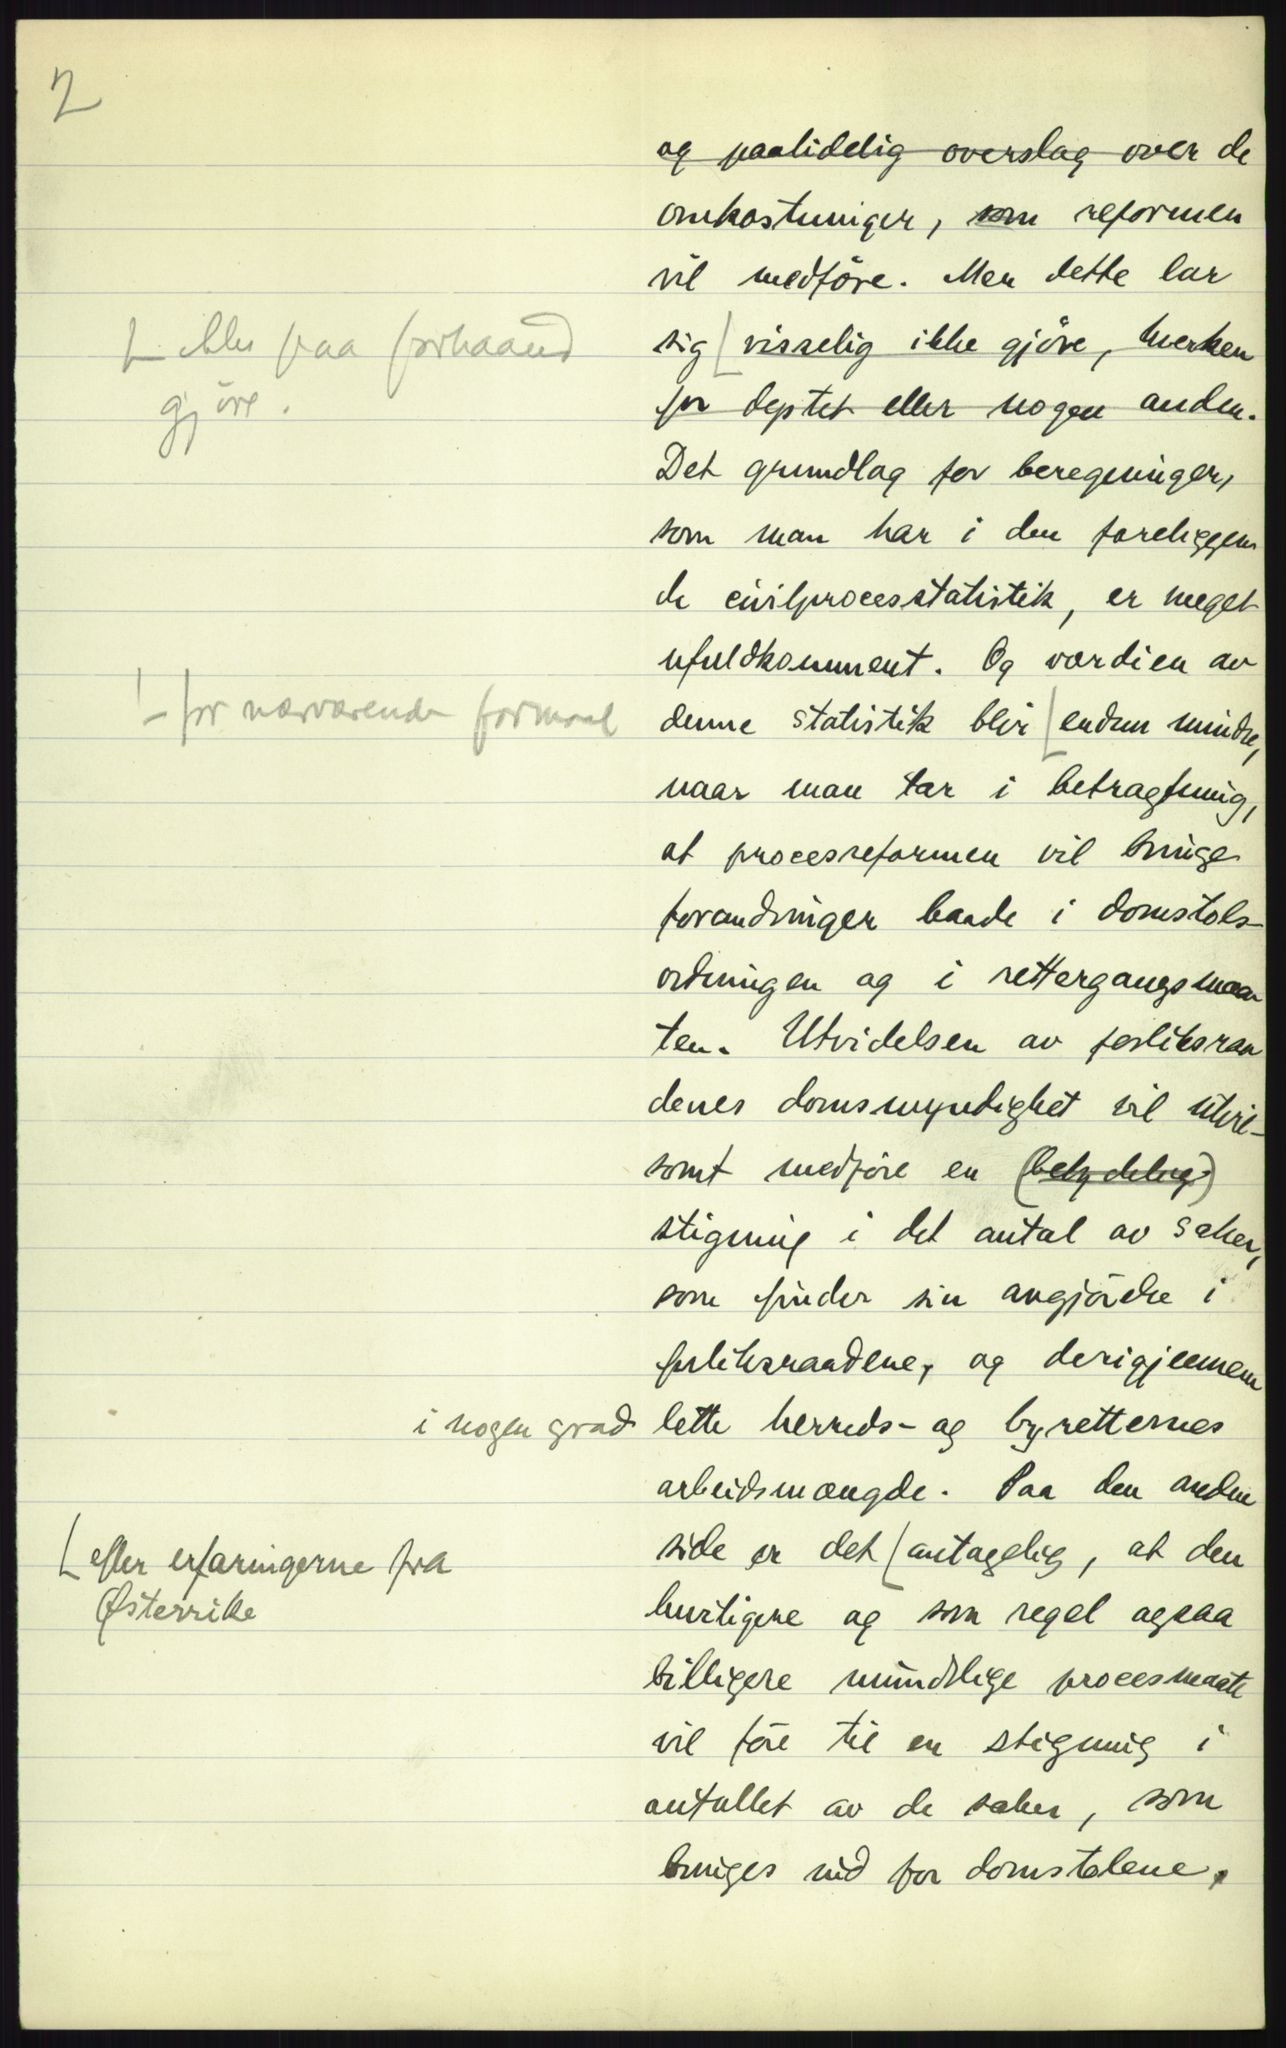 2
og paalidelig overslag over de
omkostninger, som reformen
vil medföre. Men dette lar
[ ikke paa forhaand
gjöre.
sig [ visselig ikke gjöre, hverken
for deptet eller nogen anden.
Det grundlag for beregninger,
som man har i den foreliggen
de civilprocesstatistik, er meget
ufuldkomment. Og værdien av
[ for nærværende formaal
denne statistik blir [ endnu mindre,
naar man tar i betragtning,
at procesreformen vil bringe
forandringer baade i domstols-
ordningen og i rettergangsmaa
ten. Utvidelsen av forliksraa
denes domsmyndighet vil utvil-
somt medföre en (betydelig)
stigning i det antal av saker,
som finder sin avgjörelse i
forliksraadene, og derigjennem
i nogen grad
lette herreds- og byretternes
arbeidsmængde. Paa den anden
[ efter erfaringerne fra
Østerrike
side er det [ antagelig, at den
hurtigere og som regel ogsaa
billigere mündtlige procesmaate
vil före til en stigning i
antallet av de saker, som
bringes ind for domstolene.